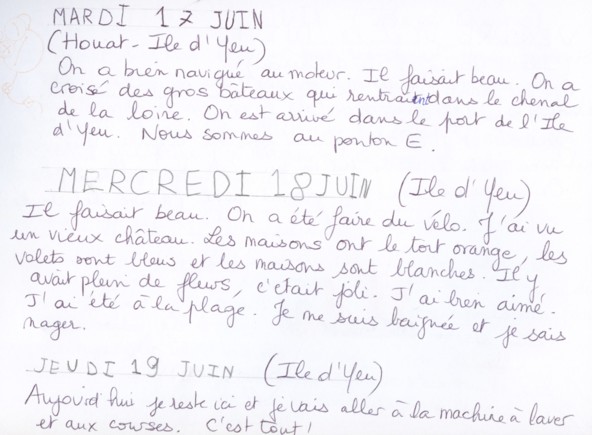 MARDI 17 JUIN
(Houat - Ile d'Yeu)
On a bien navigué au moteur. Il faisait beau. On a
croisé des gros bâteaux qui rentraient dans le chenal
de la loire. On est arrivé dans le port de l'Ile
d'Yeu. Nous sommes au ponton E.
MERCREDI 18 JUIN (Ile d'Yeu)
Il faisait beau. On a été faire du vélo. J'ai vu
un vieux château. Les maisons ont le toit orange, les
volets sont bleus et les maisons sont blanches. Il y
avait plein de fleurs, c'était joli. J'ai bien aimé.
J'ai été à la plage. Je me suis baignée et je sais
nager.
JEUDI 19 JUIN (Ile d'Yeu)
Aujourd'hui je reste ici et je vais aller à la machine à laver
et aux courses. C'est tout!